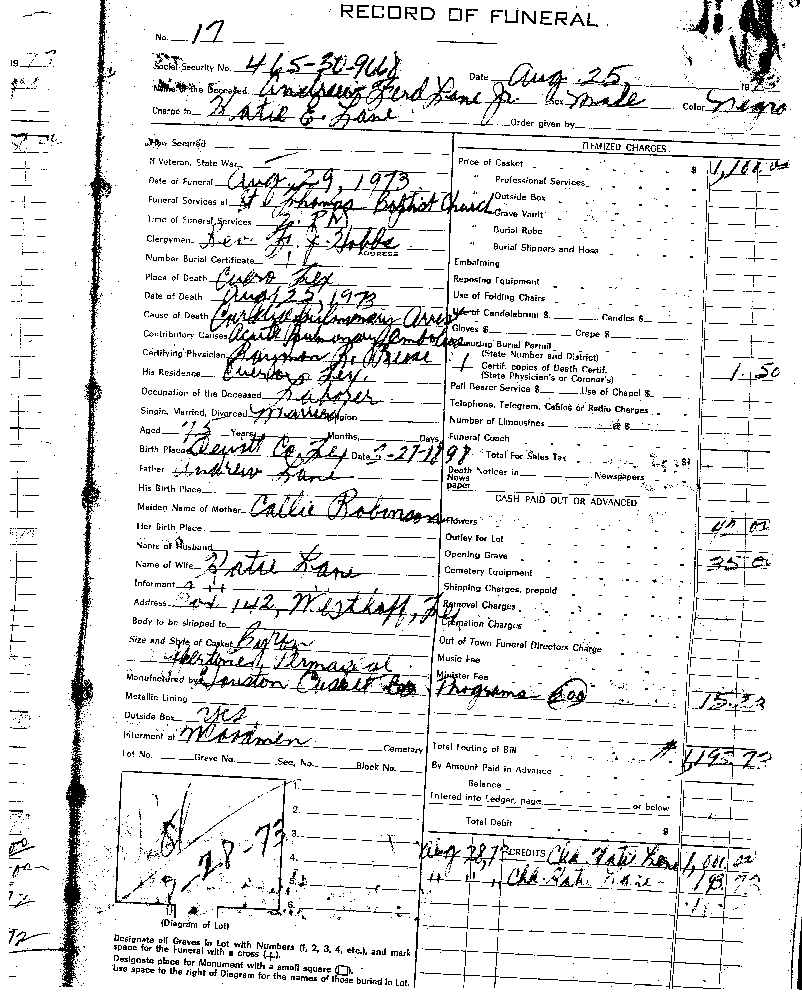 RECORD OF FUNERAL
No. 17
Social Security No. 465-30-9668
Date Aug. 25 19 73
Name of the Deceased Andrew Ferd Lane Jr. Sex Male Color Negro
Charge to Katie E. Lane Order given by
How Secured
If Veteran, State War
Date of Funeral Aug. 29, 1973
Funeral Services at St. Thomas Baptist Church
Time of Funeral Services 2. PM
Clergyman Rev. Hobbs
ADDRESS
Number Burial Certificate
Place of Death Cuero Tex
Date of Death Aug. 25, 1973
Cause of Death Cardiopulmonary Arrest
Contributory Causes Acute Pulmonary Embolus
Certifying Physician Raymon Reese
His Residence Cuero, Tex.
Occupation of the Deceased Laborer
Single, Married, Divorced Married Religion
Aged 75 Years Months Days
Birth Place Dewitt Co. Tex Date 3-27-1898
Father Andrew Lane
His Birth Place
Maiden Name of Mother Callie Robinson
Her Birth Place
Name of Husband
Name of Wife Katie Lane
Informant
Address Box 142, Westhoff, Tex
Body to be shipped to
Size and Style of Casket
Permaseal
Manufactured by Houston Casket
Metallic Lining
Outside Box yes
Interment at Woodmen Cemetery
Lot No. Grave No. Sec. No. Block No.
ITEMIZED CHARGES
Price of Casket $
" Professional Services
" Outside Box
" Grave Vault
" Burial Robe
" Burial Slippers and Hose
Embalming
Reposing Equipment
Use of Folding Chairs
Use of Candelabrum $ Candles $
Gloves $ Crepe $
Burial Permit
(State Number and District)
1 Certif. copies of Death Certif. 1.50
(State Physician's or Coroner's)
Pall Bearer Service $ Use of Chapel $
Telephone, Telegram, Cables or Radio Charges
Number of Limousines @ $
Funeral Coach
Total For Sales Tax
Death Notices in Newspapers
News
paper
CASH PAID OUT OR ADVANCED
Flowers
Outlay for Lot
Opening Grave 35 00
Cemetery Equipment
Shipping Charges, prepaid
Removal Charges
Cremation Charges
Out of Town Funeral Directors Charge
Music Fee
Minister Fee
Programs 200
Total Footing of Bill 1,193.73
By Amount Paid in Advance
Balance
Entered into Ledger, page or below
Total Debit $
Aug 28, 73 CREDITS Chk Katie Lane 1,001.00
" " " Chk Katie Lane
1.
2.
3.
4.
5.
6.
(Diagram of Lot)
Designate all Graves in Lot with Numbers (1, 2, 3, 4, etc.), and mark
space for the Funeral with a cross (+).
Designate place for Monument with a small square (□).
Use space to the right of Diagram for the names of those buried in Lot.